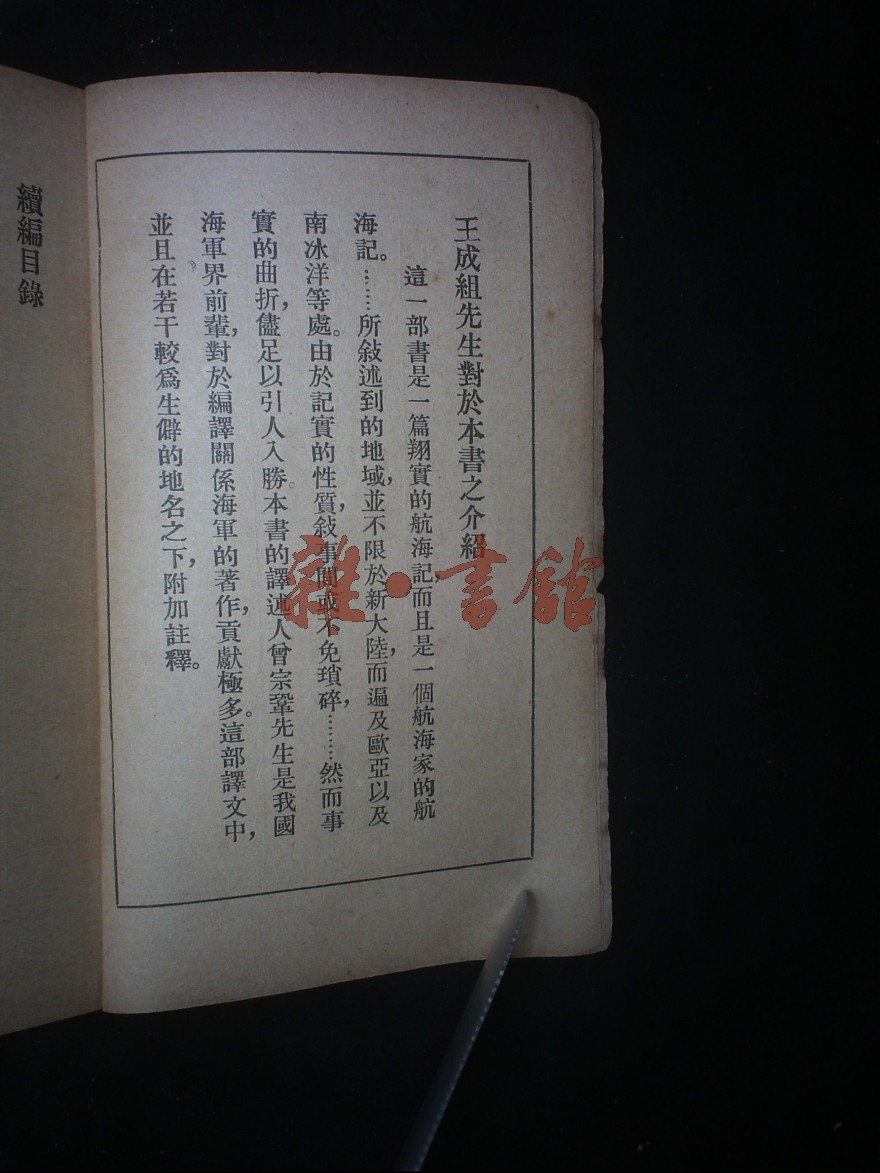 王成組先生對於本書之介紹
這一部書是一篇翔實的航海記,而且是一個航海家的航
海記。……所敍述到的地域,並不限於新大陸,而遍及歐亞以及
南冰洋等處。由於記實的性質,敍事間或不免瑣碎,……然而事
實的曲折,儘足以引人入勝。本書的譯述人曾宗鞏先生是我國
海軍界前輩,對於編譯關係海軍的著作,貢獻極多。這部譯文中,
並且在若干較爲生僻的地名之下,附加註釋。
續編目錄
雜·書館